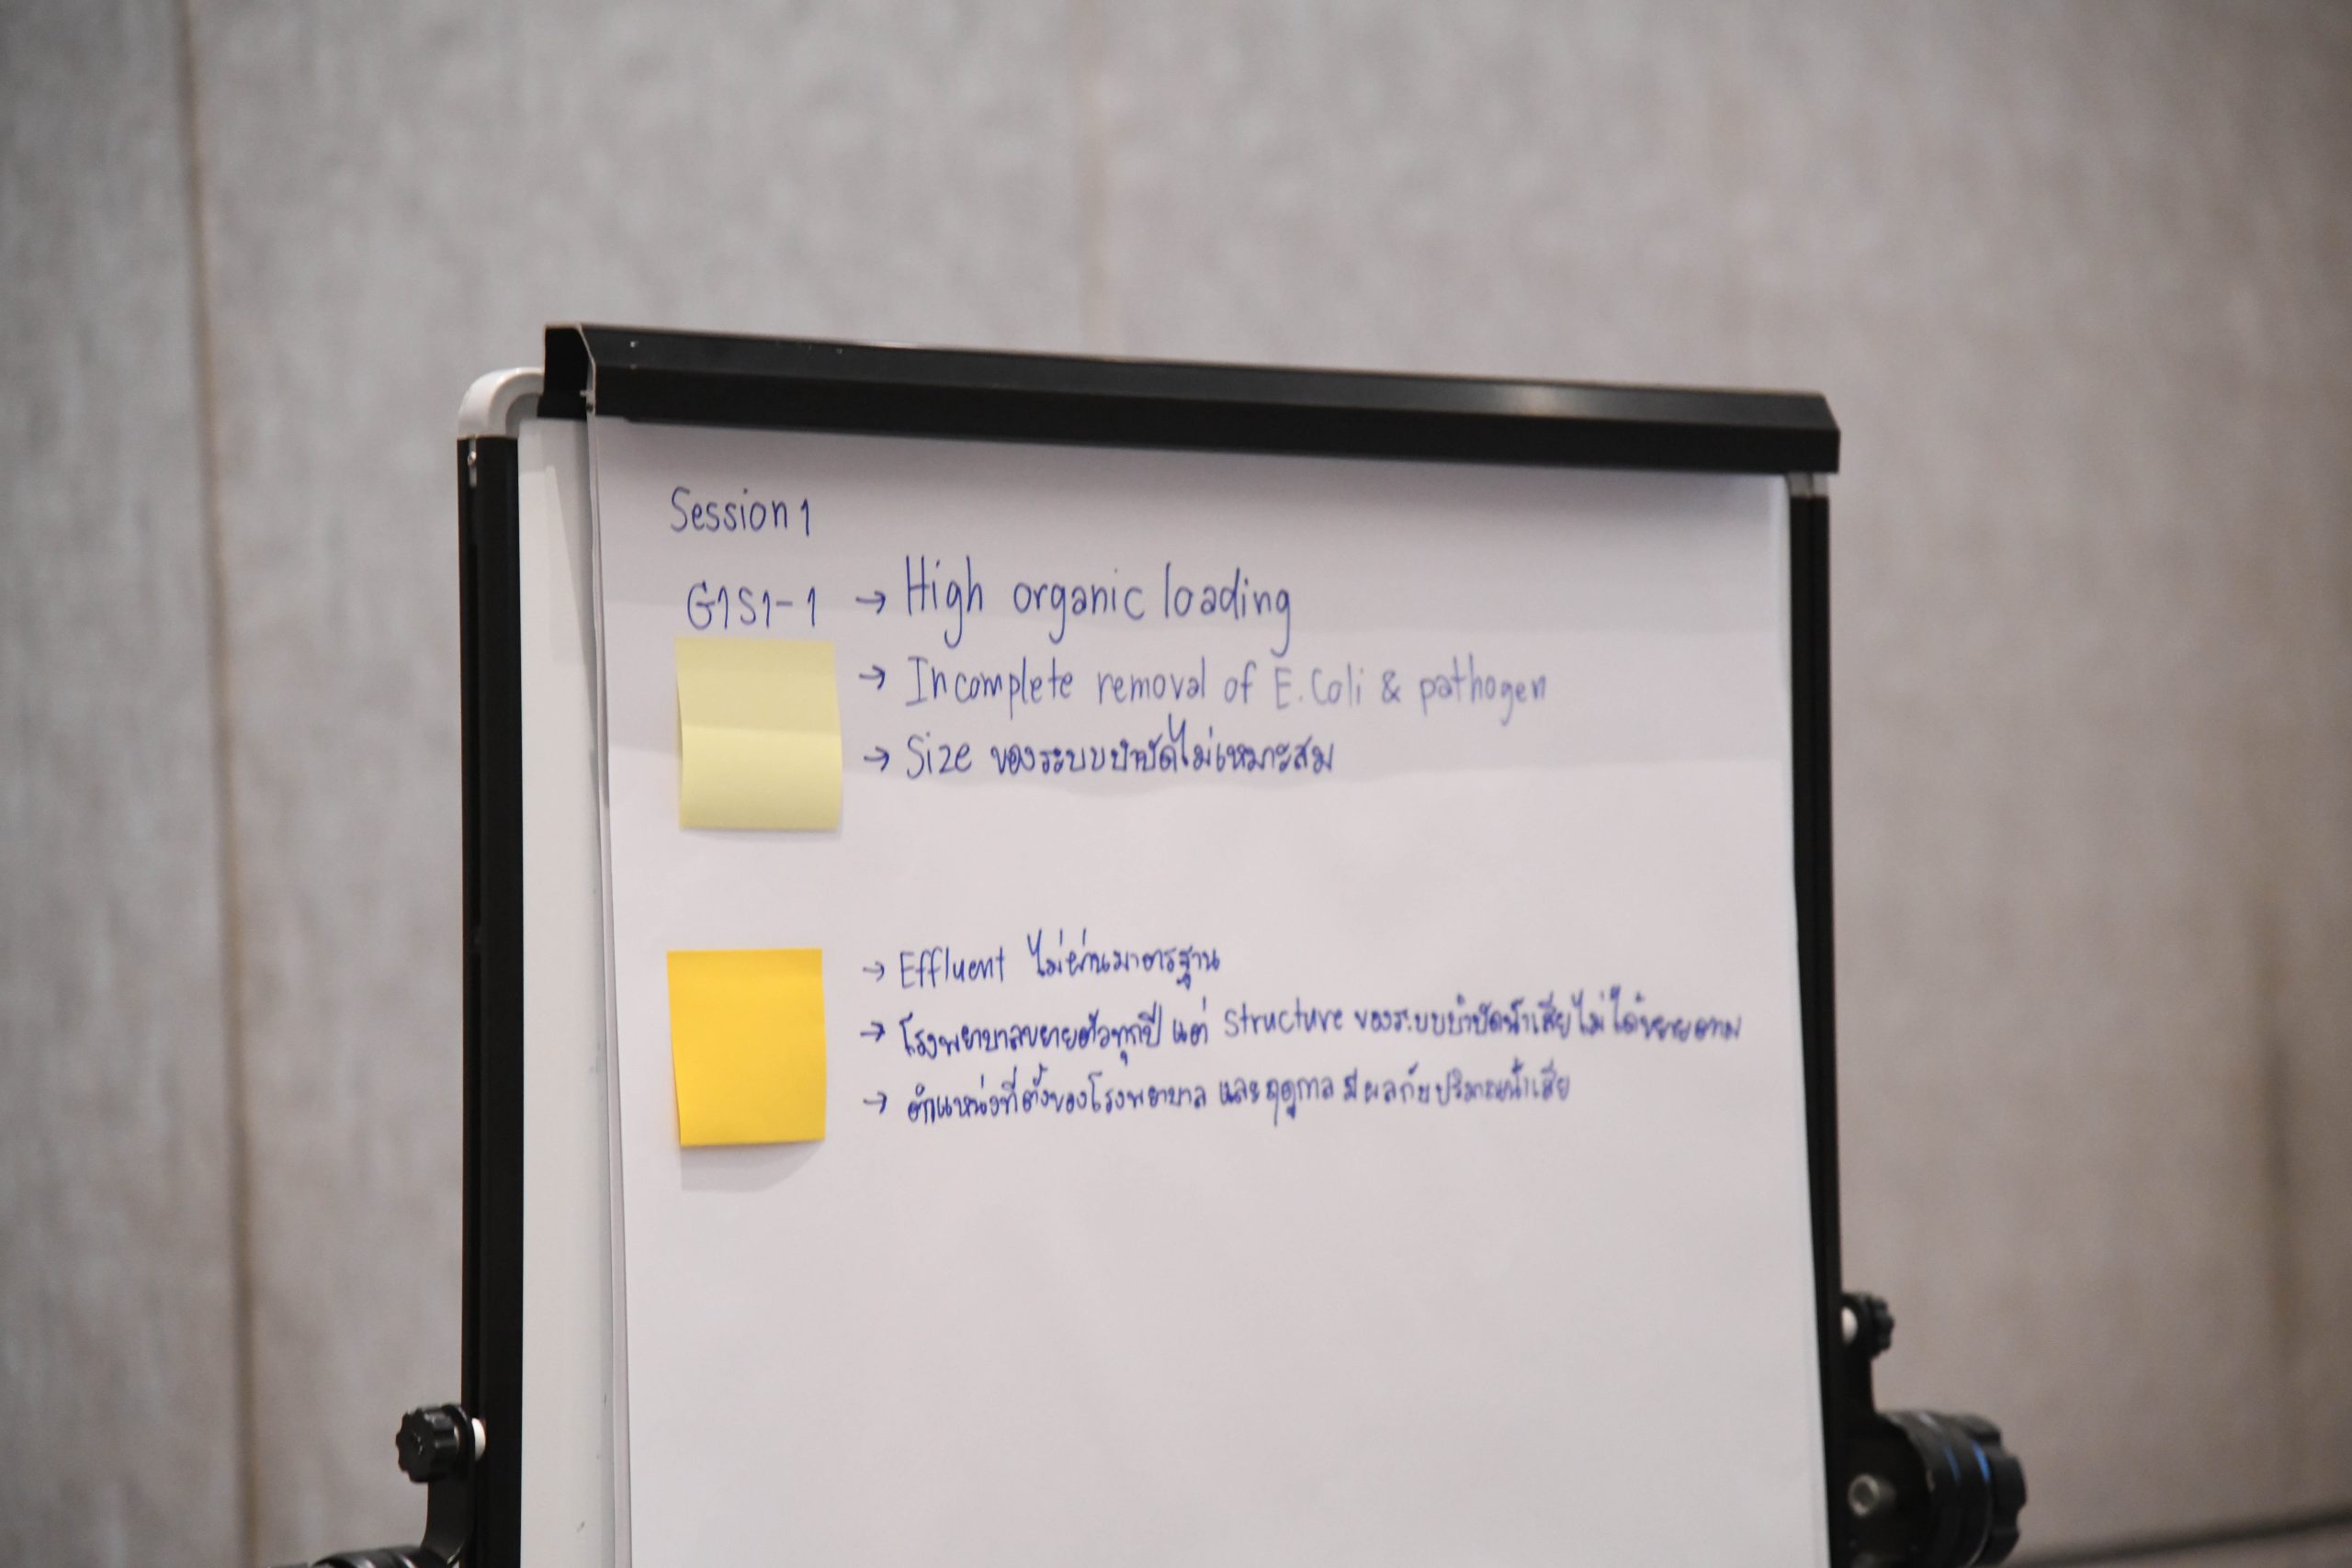 Session 1
G1S1-1 → High organic loading
→ Incomplete removal of E.Coli & pathogen
→ Size ของระบบบำบัดไม่เหมาะสม
→ Effluent ไม่ผ่านมาตรฐาน
→ โรงพยาบาลขยายตัวทุกปี แต่ Structure ของระบบบำบัดน้ำเสียไม่ได้ขยายตาม
→ ตำแหน่งที่ตั้งของโรงพยาบาล และฤดูกาล มีผลกับปริมาณน้ำเสีย